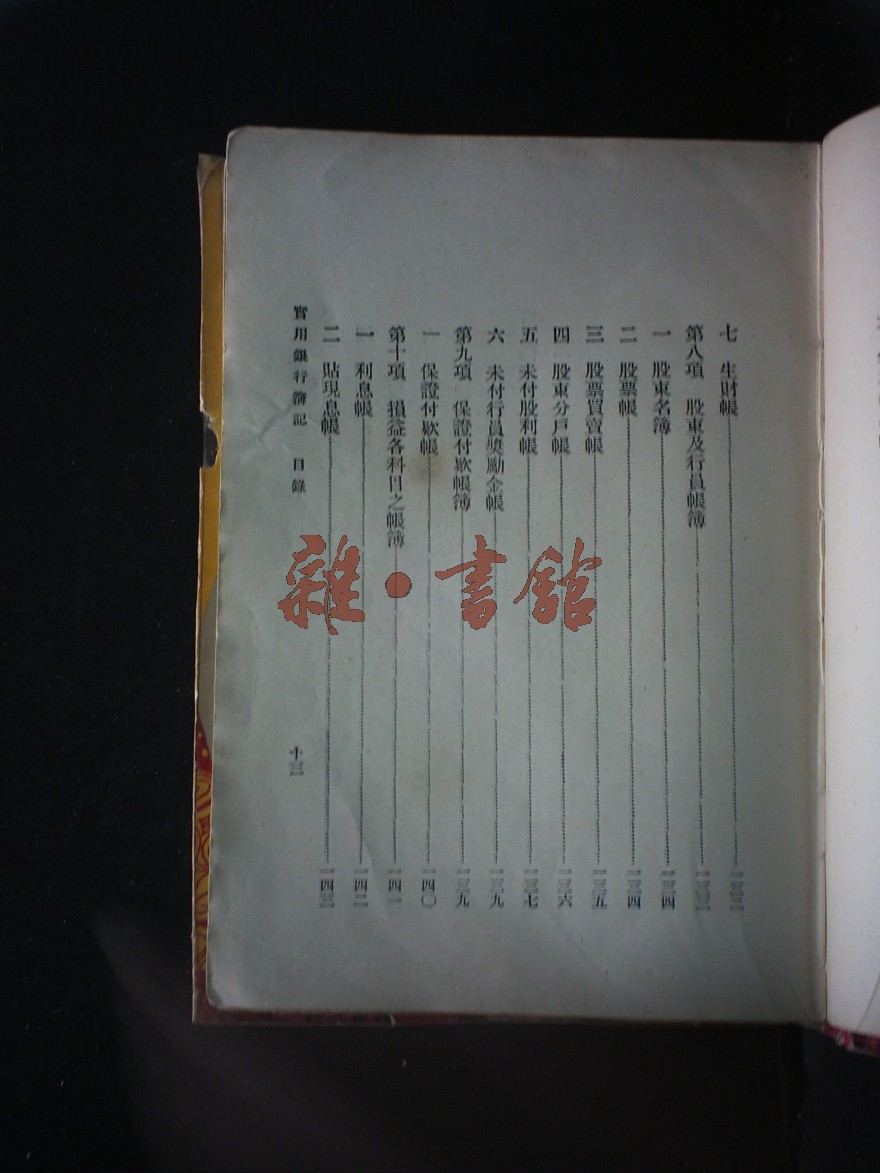 七 生財帳 一三二
第八項 股東及行員帳簿 一三三
一 股東名簿 一三四
二 股票帳 一三四
三 股票買賣帳 一三五
四 股東分戶帳 一三六
五 未付股利帳 一三七
六 未付行員獎勵金帳 一三九
第九項 保證付款帳簿 一三九
一 保證付款帳 一四〇
第十項 損益各科目之帳簿 一四一
一 利息帳 一四二
二 貼現息帳 一四三
實用銀行簿記 目錄 十三
雜·書館